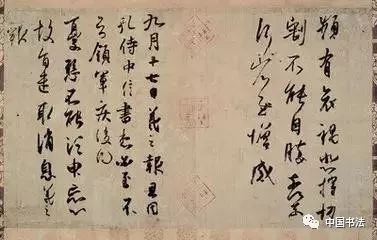 頻有哀禍悲摧切
割不能自勝奈何
奈何省慰增感
九月十七日羲之報且因
孔侍中信書想必至不
知領軍疾後問
憂懸不能須臾忘心
故旦遣取消息羲之
報
中国书法